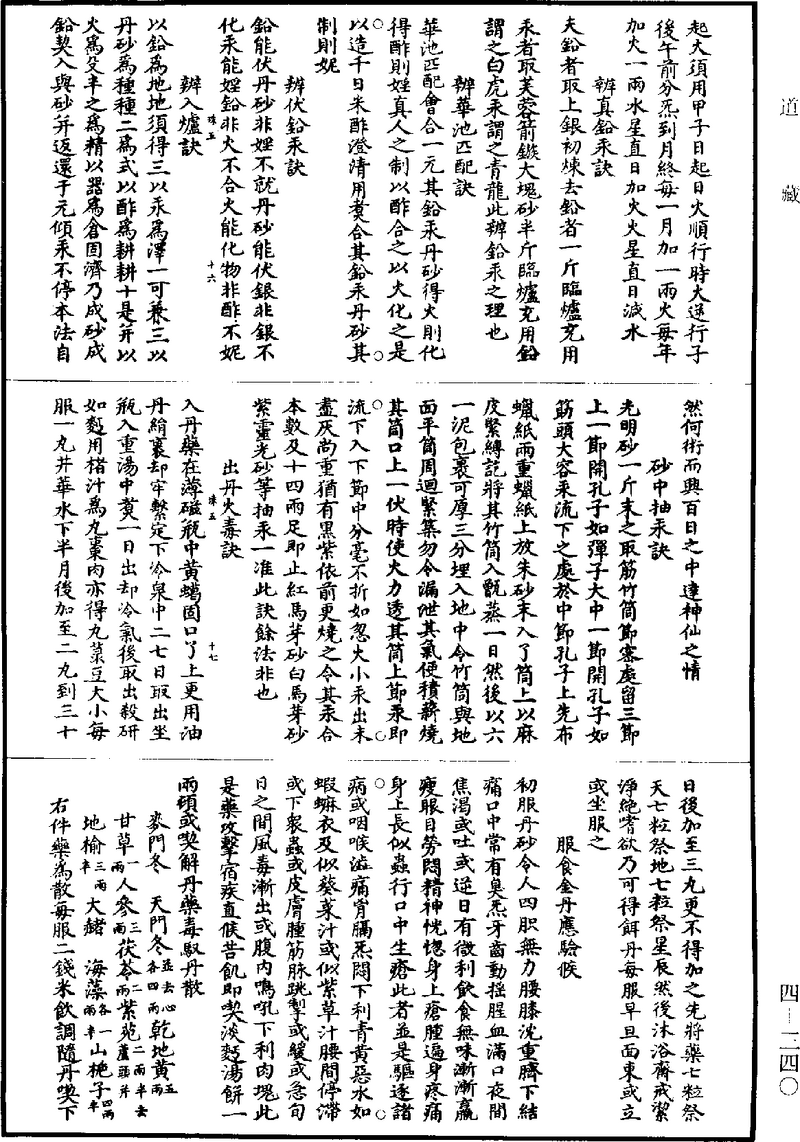 道藏
四―二四〇
起火須用甲子日起日火順行時火逆行子
後午前分炁到月終每一月加一兩火每年
加火一兩水星直日加火火星直日減水
辨真鉛汞訣
夫鉛者取上銀初煉去鉛者一斤臨爐充用
汞者取芙蓉箭鏃大塊砂半斤臨爐充用鉛
謂之白虎汞謂之青龍此辨鉛汞之理也
辨華池匹配訣
華池匹配會合一元其鉛汞丹砂得火則化
得酢則婬真人之制以酢合之以火化之是
以造千日米酢澄清用煑合其鉛汞丹砂其
制則妮
辨伏鉛汞訣
鉛能伏丹砂非婬不就丹砂能伏銀非銀不
化汞能婬鉛非火不合火能化物非酢不妮
珠五
十六
辨入爐訣
以鉛爲地地須得三以汞爲澤一可兼三以
丹砂爲種種二爲式以酢爲耕耕十是并以
火爲殳半之爲精以器爲倉固濟乃成砂成
鉛契入與砂并返還于元傾汞不停本法自
然何術而興百日之中達神仙之情
砂中抽汞訣
光明砂一斤末之取筋竹筒節塞處留三節
上一節開孔子如彈子大中一節開孔子如
筋頭大容汞流下之處於中節孔子上先布
蠟紙兩重蠟紙上放朱砂末入了筒上以麻
皮緊縛訖將其竹筒入甑蒸一日然後以六
一泥包裹可厚三分埋入地中令竹筒與地
面平筒周迴緊築勿令漏泄其氣便積薪燒
其筒口上一伏時使火力透其筒上節汞即
流下入下節中分毫不折如忽火小汞出未
盡灰尚重猶有黑紫依前更燒之令其汞合
本數及十四兩足即止紅馬芽砂白馬芽砂
紫靈光砂等抽汞一准此訣餘法非也
出丹火毒訣
珠五
十七
入丹藥在薄磁瓶中黃蠟固口了上更用油
丹綃裹却牢繫定下冷泉中二七日取出坐
瓶入重湯中煑一日出却冷氣後取出殺研
如麵用楮汁爲丸棗肉亦得丸菉豆大小每
服一丸井華水下半月後加至二丸到三十
日後加至三丸更不得加之先將藥七粒祭
天七粒祭地七粒祭星辰然後沐浴齋戒潔
淨絶嗜欲乃可得餌丹每服早旦面東或立
或坐服之
服食金丹應驗候
初服丹砂令人四肢無力腰膝沈重臍下結
痛口中常有臭炁牙齒動揺腥血滿口夜間
焦渴或吐或逆日有微利飲食無味漸漸羸
瘦眼目勞悶精神恍惚身上瘡腫遍身疼痛
身上長似蟲行口中生瘡此者並是驅逐諸
病或咽喉澁痛胷膈炁悶下利青黃惡水如
蝦蟆衣及似葵菜汁或似紫草汁腰間停滯
或下衆蟲或皮膚腫筋脉跳掣或緩或急旬
日之間風毒漸出或腹内鳴吼下利肉塊此
是藥攻擊宿疾直候苦飢即喫淡麵湯餅一
兩頓或喫解丹藥毒馭丹散
麥門冬　天門冬並去心各四兩乾地黃五兩
甘草一兩人參三兩茯苓二兩紫苑二兩半去蘆頭并
地榆三兩半大赭　海藻各一兩半山梔子四兩半
右件藥爲散每服二錢米飲調隨丹喫下